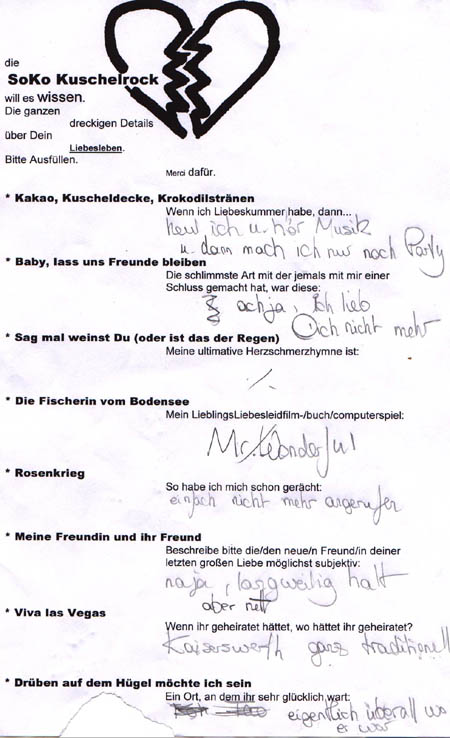 die
SoKo Kuschelrock
will es wissen.
Die ganzen
dreckigen Details
über Dein
Liebesleben.
Bitte Ausfüllen.
Merci dafür.
* Kakao, Kuscheldecke, Krokodilstränen
Wenn ich Liebeskummer habe, dann...
heul ich u. hör Musik
u. dann mach ich nur noch Party
* Baby, lass uns Freunde bleiben
Die schlimmste Art mit der jemals mit mir einer
Schluss gemacht hat, war diese:
ach ja, Ich lieb
Dich nicht mehr
* Sag mal weinst Du (oder ist das der Regen)
Meine ultimative Herzschmerzhymne ist:
./.
* Die Fischerin vom Bodensee
Mein LieblingsLiebesleidfilm-/buch/computerspiel:
Mr. Wonderful
* Rosenkrieg
So habe ich mich schon gerächt:
einfach nicht mehr angerufen
* Meine Freundin und ihr Freund
Beschreibe bitte die/den neue/n Freund/in deiner
letzten großen Liebe möglichst subjektiv:
naja, langweilig halt
aber nett
* Viva las Vegas
Wenn ihr geheiratet hättet, wo hättet ihr geheiratet?
Kaiserswerth ganz traditionell
* Drüben auf dem Hügel möchte ich sein
Ein Ort, an dem ihr sehr glücklich wart:
eigentlich überall wo
er war